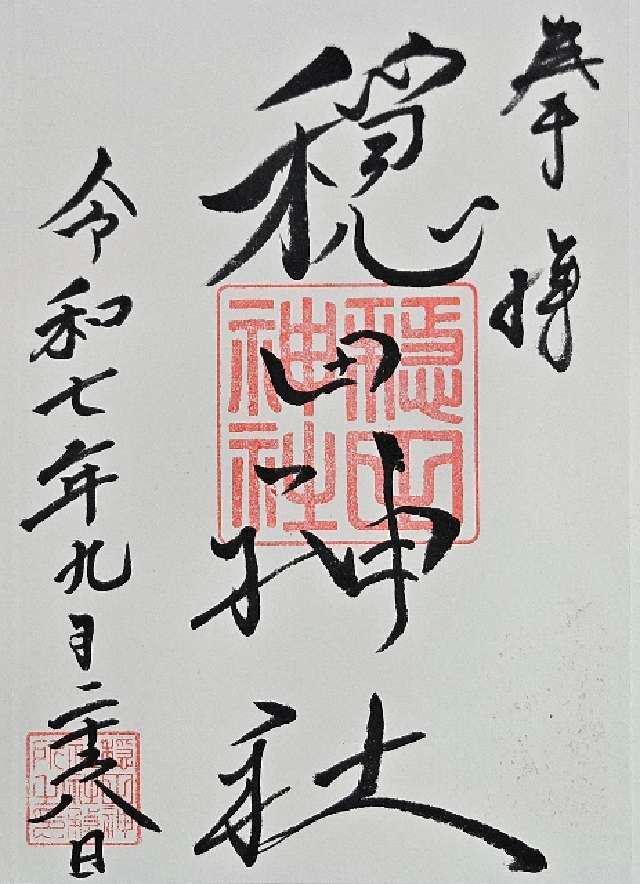 奉拝
穏田神社
穏田
神社
令和七年九月二十八日